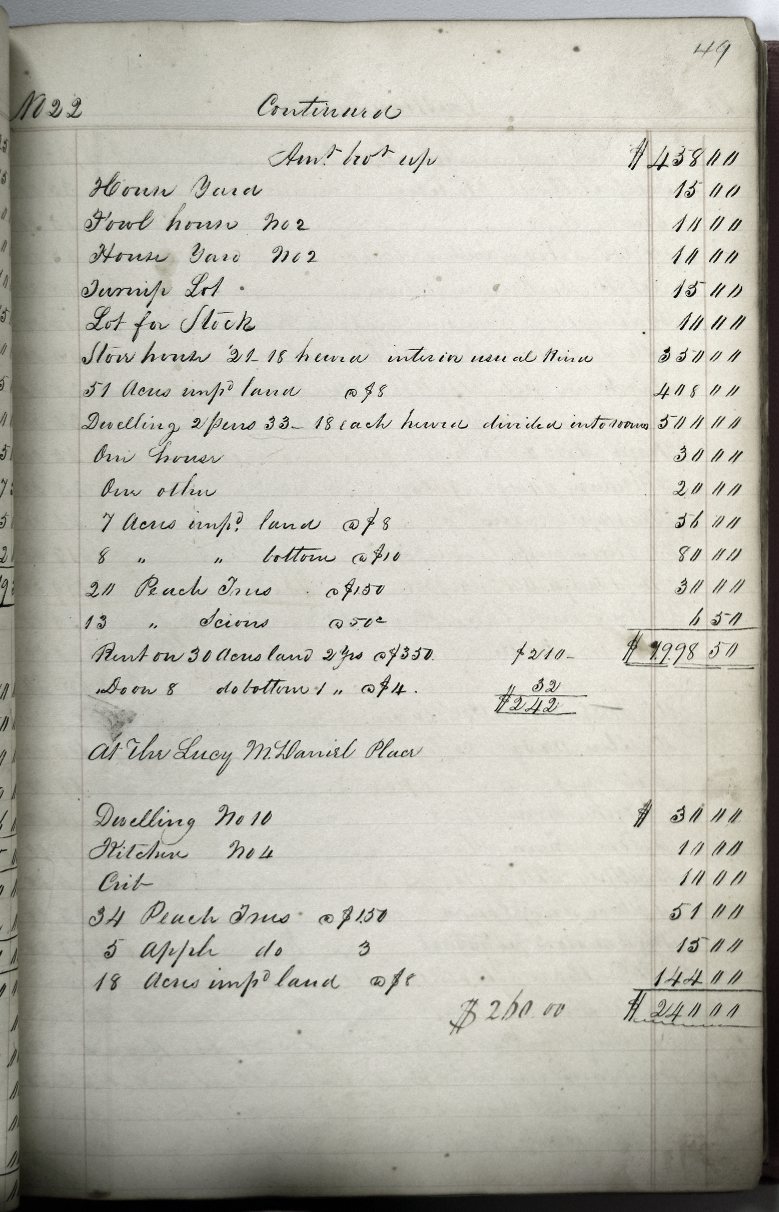 49
No 22 Continued
Amt. brot up $ 458 00
House Yard 15 00
Fowl house No 2 10 00
House Yard No 2 10 00
Turnip Lot 15 00
Lot for Stock 10 00
Store house 21-18 hewed interior usual kind 350 00
51 Acres impd land @ $8 408 00
Dwelling 2 pens 33-18 each hewed divided into rooms 500 00
One house 30 00
One other 20 00
7 Acres impd. land @ $8 56 00
8 " " bottom @ $10 80 00
20 Peach Trees @ $1.50 30 00
13 " Scions @ 50c 6 50
Rent on 30 Acres land 2 Yrs @ $3.50. $210- $ 1998 50
" Do on 8 do bottom 1 " @ $4. " 32
$242
At The Lucy McDaniel Place
Dwelling No 10 $ 30 00
Kitchen No 4 10 00
Crib 10 00
34 Peach Trees @ $1.50 51 00
5 Apple do 3 15 00
18 Acres impd land @ $8 144 00
$260.00 $ 240 00